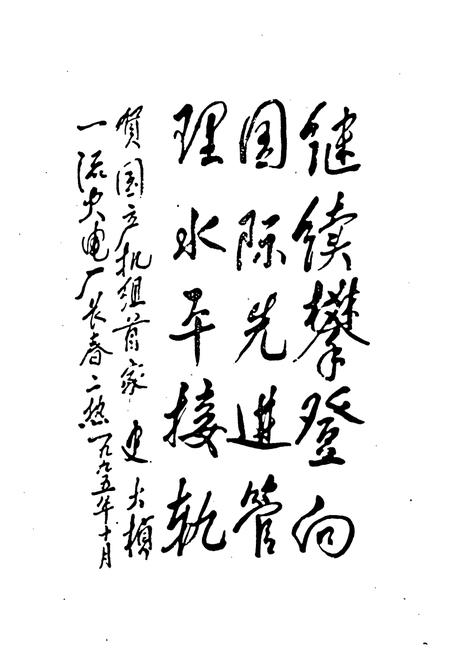 继续攀登向
国际先进管
理水平接轨
贺国产机组首家
一流火电厂长春二热
史大桢
一九九五年十月